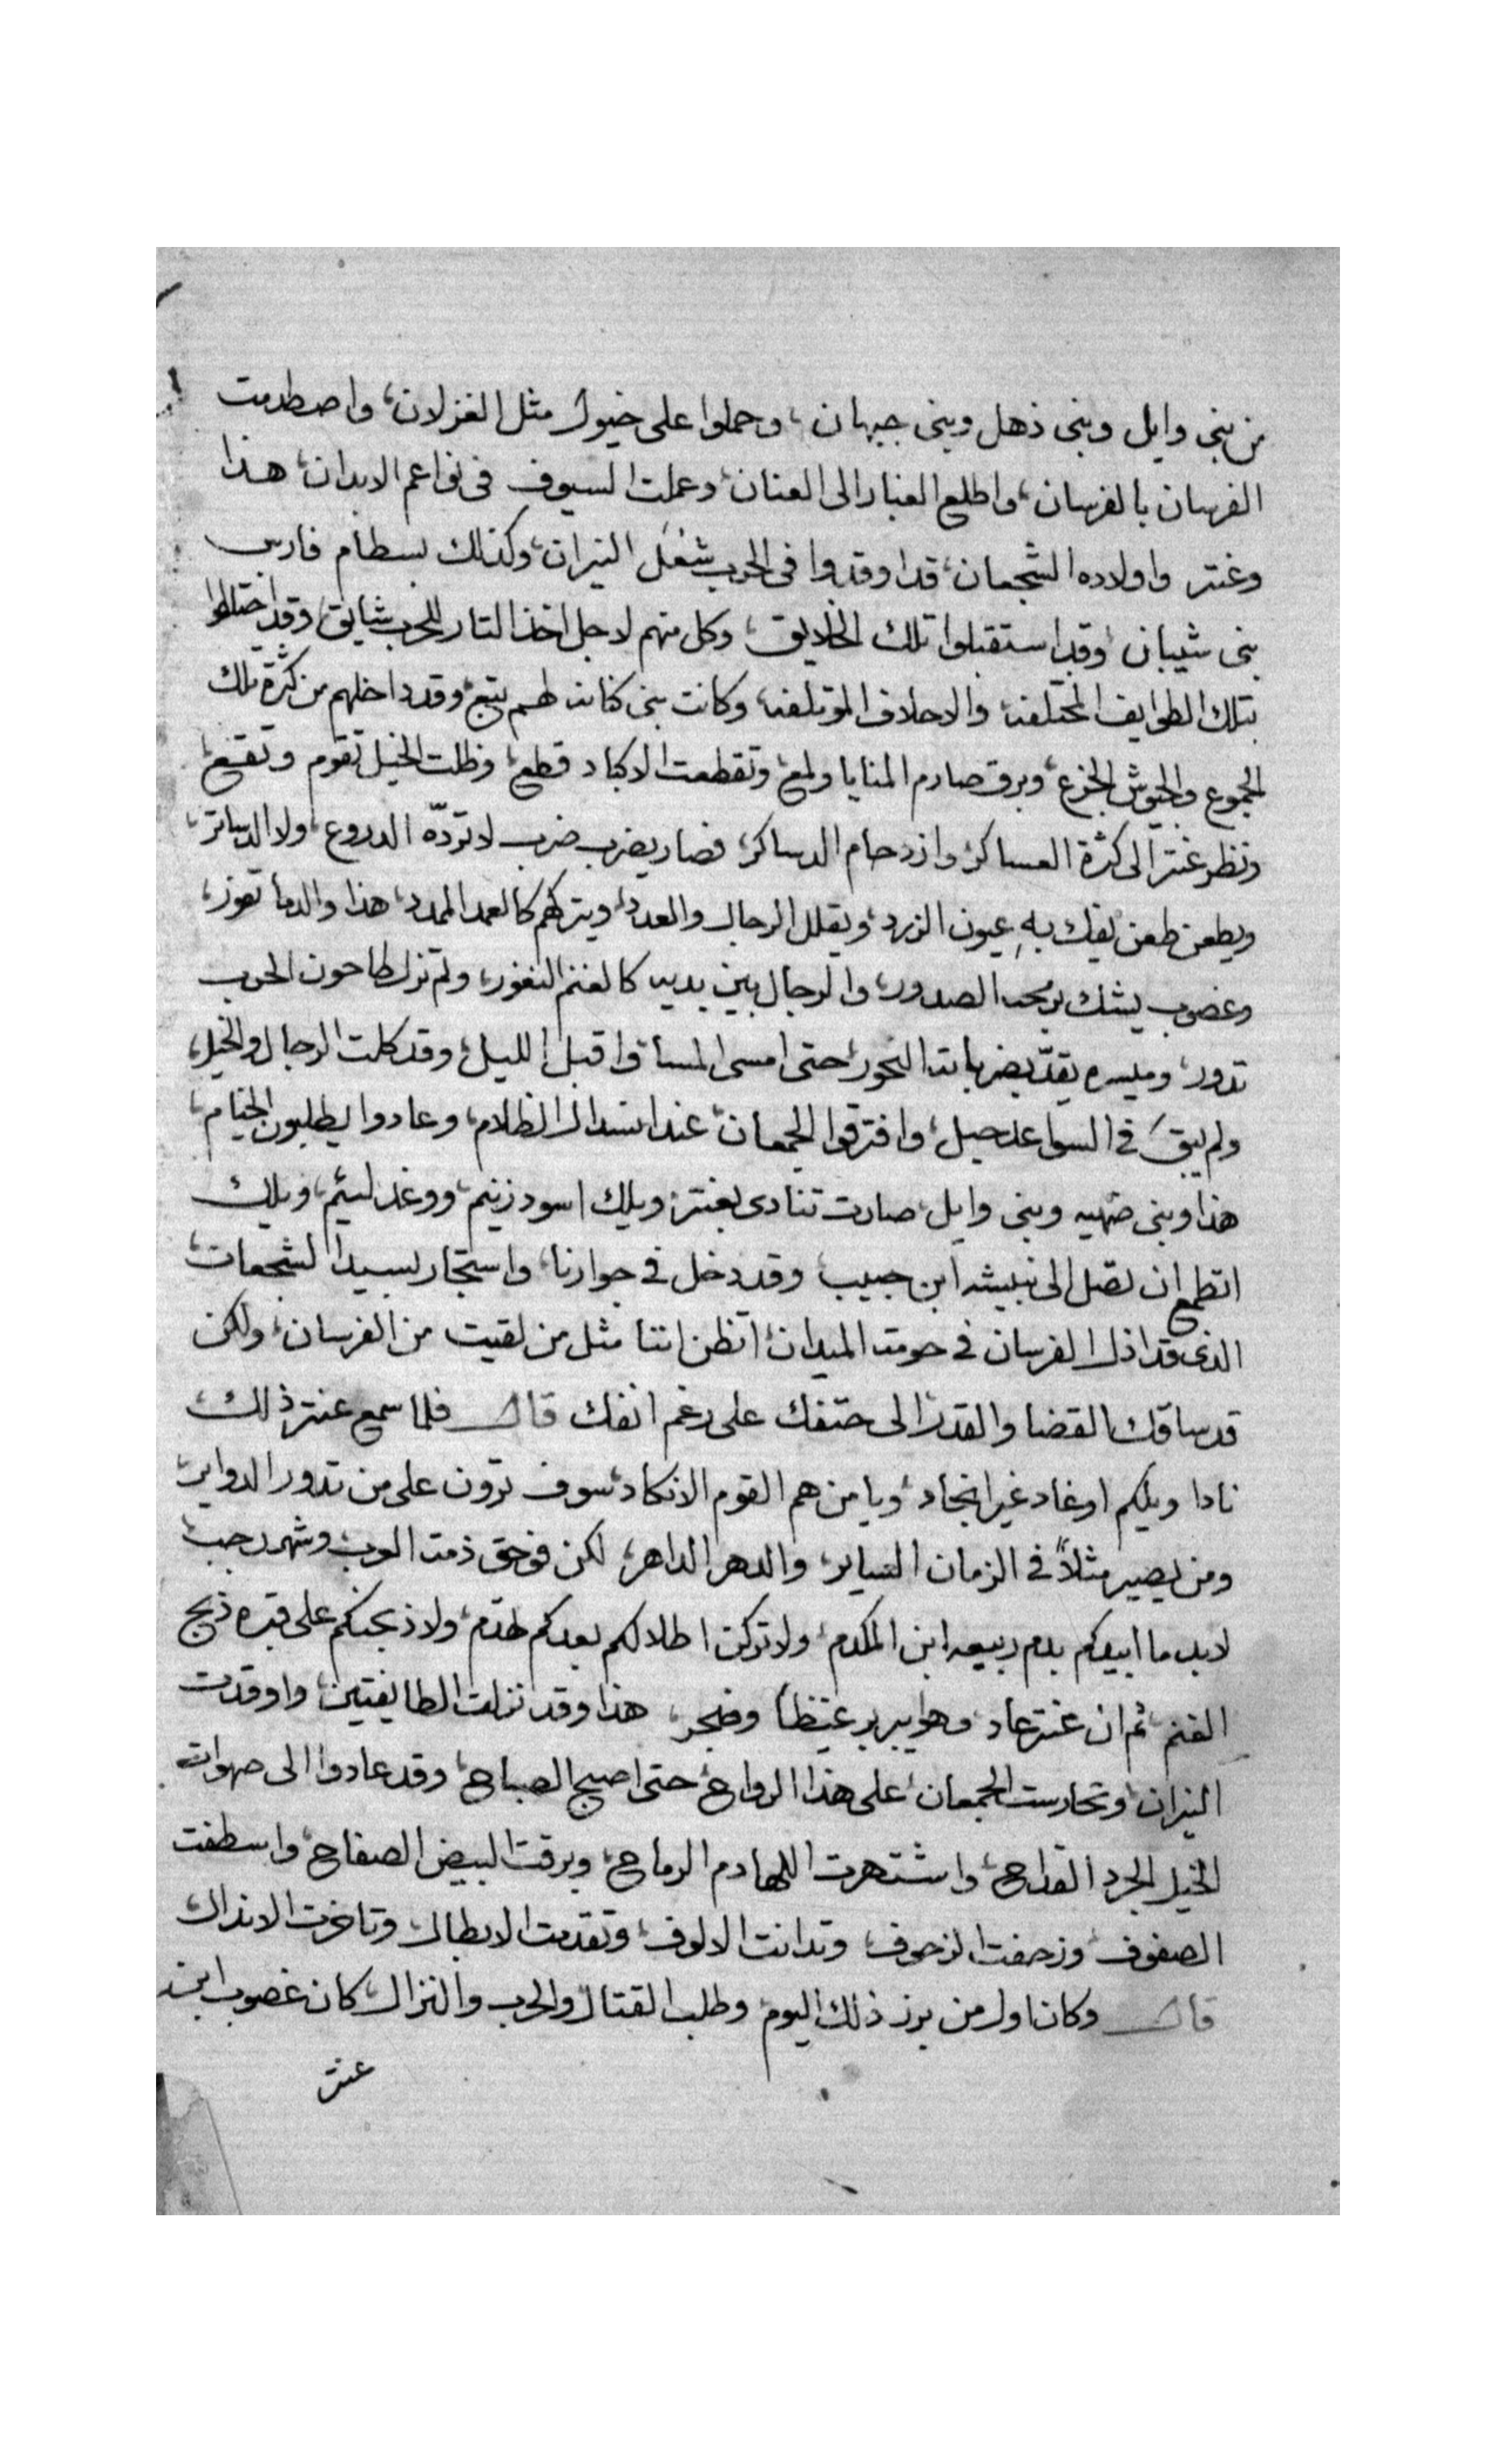 من بنى وايل وبنى ذهل وبنى جبهان، وحملوا على خيول مثل الغزلان، واصطدمت
الفرسان بالفرسان، واطلع الغبار الى العنان، وعملت السيوف فى نواعم الابدان، هذا
وعنتر واولاده الشجعان، قد اوقدوا فى الحرب شُعَل النيران، وكذلك بسطام فارس
بنى شيبان، وقد استقبلوا تلك الخلايق، وكل منهم لاجل اخذ التار للحرب شايق، وقد اختلطوا
بتلك الطوايف المختلفه، والاحلاف الموتلفه، وكانت بنى كنانه لهم تبع، وقد داخلهم من كثرة تلك
الجموع والجيوش الجزع، وبرق صارم المنايا ولمع، وتقطعت الاكباد قطع، وظلت الخيل تقوم وتقع،
ونظر عنتر الى كثرة العساكر، وازدحام الدساكر، فصار يضرب ضرب لا تردّه الدروع، ولا الدساتر،
ويطعن طعن يفك بهِ عيون الزرد، ويقلل الرجال والعدد، ويتركهم كالعمد الممدد، هذا والدما تفور،
وغضوب يشك برمحه الصدور، والرجال بين يديه كالغنم النفور، ولم تزل طاحون الحرب
تدور، وميسره يقدّ بضرباته النحور، حتى امسى المسا، واقبل الليل، وقد كلت الرجال والخيل،
ولم يبقَ فى السواعد حيل، وافترقوا الجمعان، عند انسدال الظلام، وعادوا يطلبون الخيام،
هذا وبنى ضهيه وبنى وايل، صارت تنادى لعنتر، ويلك اسود زنيم، ووغد لئيم، ويلك
اتطمع ان تصل الى نبيشه ابن حبيب، وقد دخل فى جوارنا، واستجار بسيد الشجعان،
الذى قد اذل الفرسان فى حومت الميدان، اتظن اننا مثل من لقيت من الفرسان، ولكن
قد ساقك القضا والقدر، الى حتفك على رغم انفك قال فلما سمع عنتر ذلك
نادا ويلكم اوغاد غير انجاد، ويا من هم القوم الانكاد، سوف ترون على من تدور الدواير،
ومن يصير مثلاً فى الزمان الساير، والدهر الداهر، لكن فوحق ذمت العرب وشهر رجب
لابد ما ابيدكم بدم ربيعه ابن المكدم، ولا تركن اطلالكم بعدكم تهدم، ولا ذبحنكم على قبره ذبح
الغنم، ثم ان عنتر عاد، وهو ايبربر غيظا وضجر، هذا وقد نزلت الطايفتين، واوقدت
النيران، وتحارست الجمعان، على هذا الرواح، حتى اصبح الصباح، وقد عادوا الى صهوات
الخيل الجرد القداح، واشتهرت اللهادم الرماح، وبرقت البيض الصفاح، واسطفت
الصفوف، وزحفت الزحوف، وتدانت الالوف، وتقدمت الابطال، وتاخرت الانذال،
قال وكان اول من برز ذلك اليوم، وطلب القتال والحرب والنزال، كان غضوب ابن
عنتر